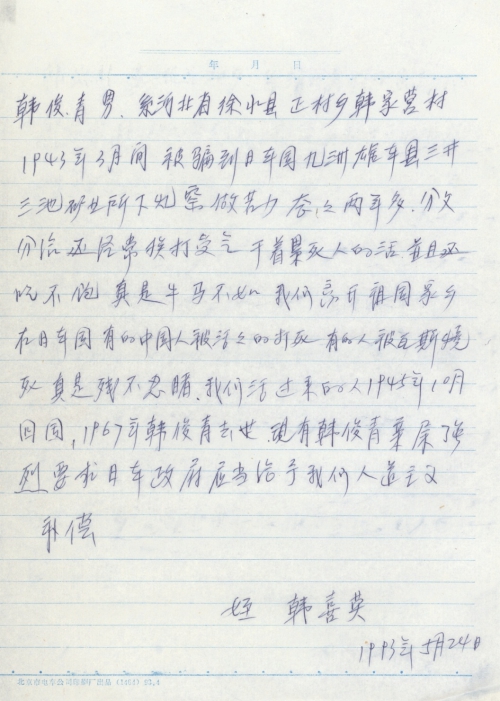 年 月 日
韩俊青 男. 系河北省徐水县 正村乡韩家营村
1943年3月间 被骗到日本国九洲雄本县三井
三池矿业所下 窑 做苦力 整整两年多. 分文
分治 还经常挨打受气 干着累死人的活 并且还
吃不饱 真是牛马不如 我们离开祖国家乡
在日本国 有的中国人被活活的打死 有的人被瓦斯烧
死 真是残不忍睹. 我们活过来的人1945年10月
回国, 1967年韩俊青去世 现有韩俊青 强
烈要求日本政府应当给予我们人道主义
补偿
侄 韩喜英
1993年5月24日
北京市电车公司印刷厂出品